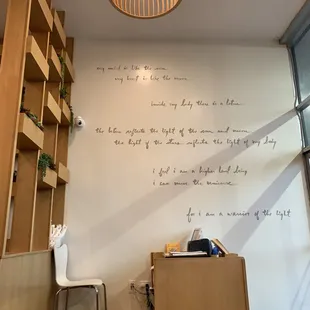 my mind is like the sun
my heart is like the moon
inside my body there is a lotus
the lotus reflects the light of the sun and moon
the light of the stars reflects the light of my body
i feel i am a higher level being
i can sense the universe
for i am a warrior of the light